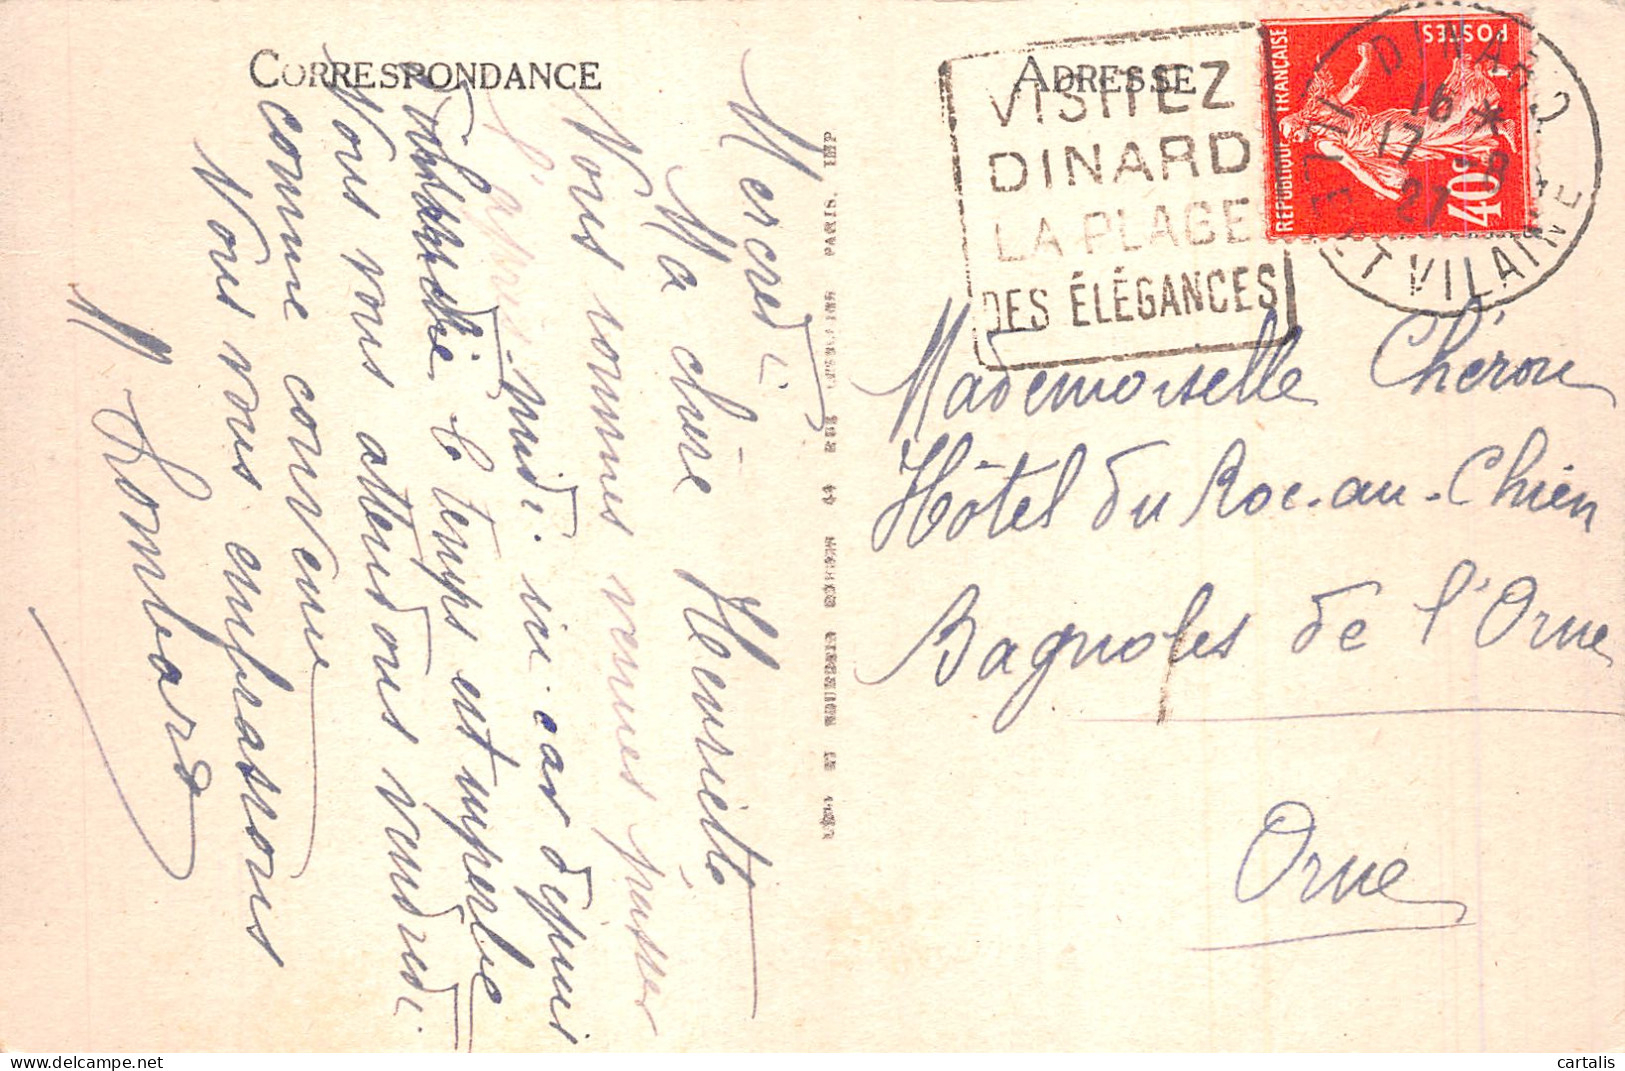 CORRESPONDANCE
Mercredi
Ma chère Henriette
Nous sommes venues passer
l'après-midi ici car depuis
dimanche le temps est superbe
Nous vous attendons vendredi
comme convenu
Nous vous embrassons
M Lombard
PARIS. IMP
ADRESSE
VISITEZ
DINARD
LA PLAGE
DES ÉLÉGANCES
RÉPUBLIQUE FRANÇAISE
POSTES
40c
DINARD
16 *
17 - 8
27
ILLE ET VILAINE
Mademoiselle Chéron
Hôtel du Roc-au-Chien
Bagnoles de l'Orne
Orne
cartalis
delcampe.net